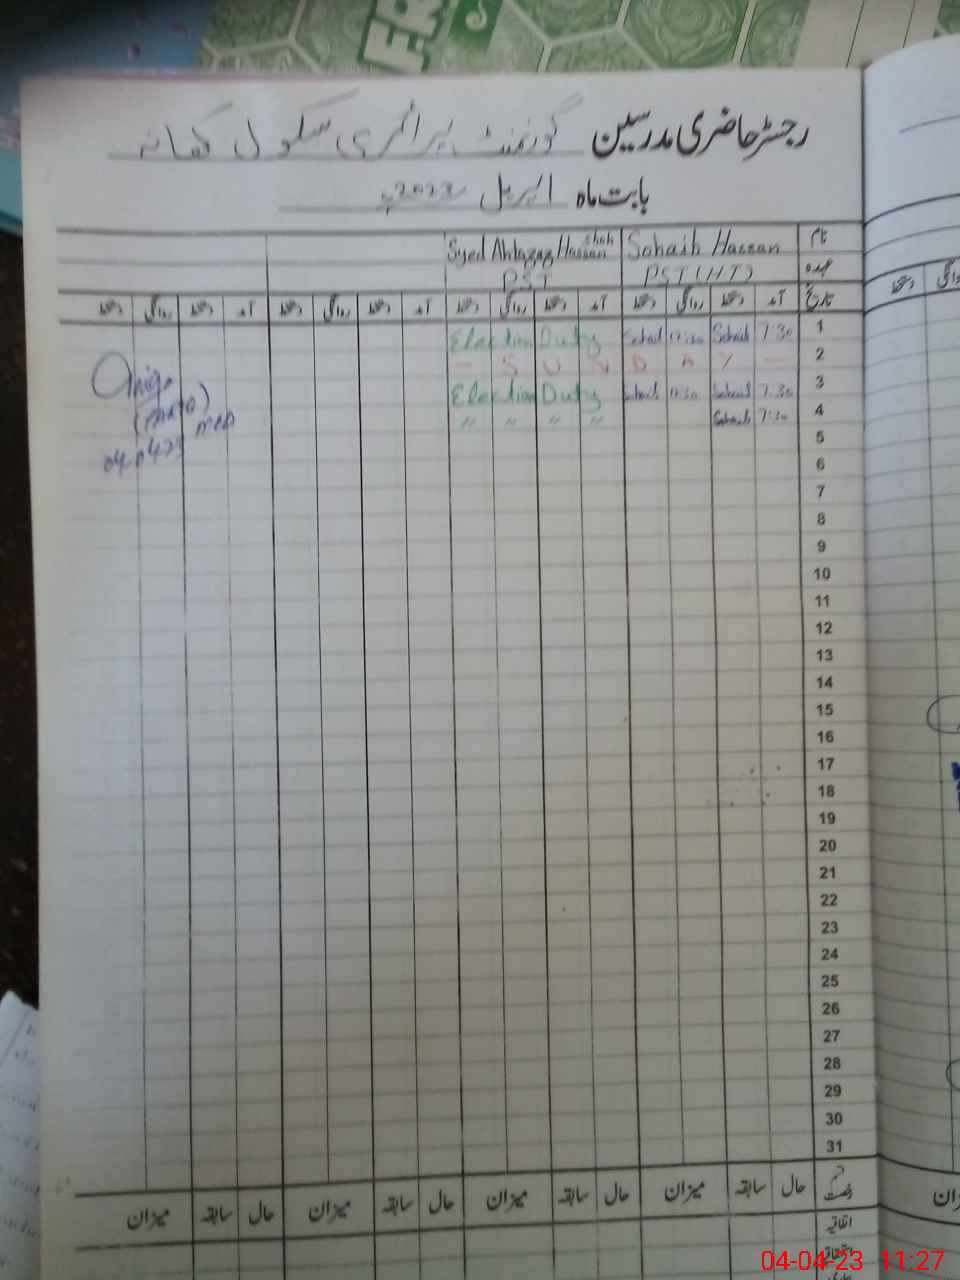 رجسٹر حاضری مدرسین گورنمنٹ پرائمری سکول
بابت ماہ اپریل 2023ء
نام Sohaib Hassan Syed Ahtazaz Hassan Shah
عہدہ PST (HT) PST
تاریخ آمد دستخط روانگی دستخط آمد دستخط روانگی دستخط آمد دستخط روانگی دستخط آمد دستخط روانگی دستخط
1 7:30 Sohaib Sohaib Election Duty
2 — S U N D A Y —
3 7:30 Sohaib Sohaib Election Duty
4 7:30 Sohaib " " " "
04-04-23
5
6
7
8
9
10
11
12
13
14
15
16
17
18
19
20
21
22
23
24
25
26
27
28
29
30
31
حال سابقہ میزان حال سابقہ میزان حال سابقہ میزان حال سابقہ میزان
اتفاقیہ
04-04-23 11:27